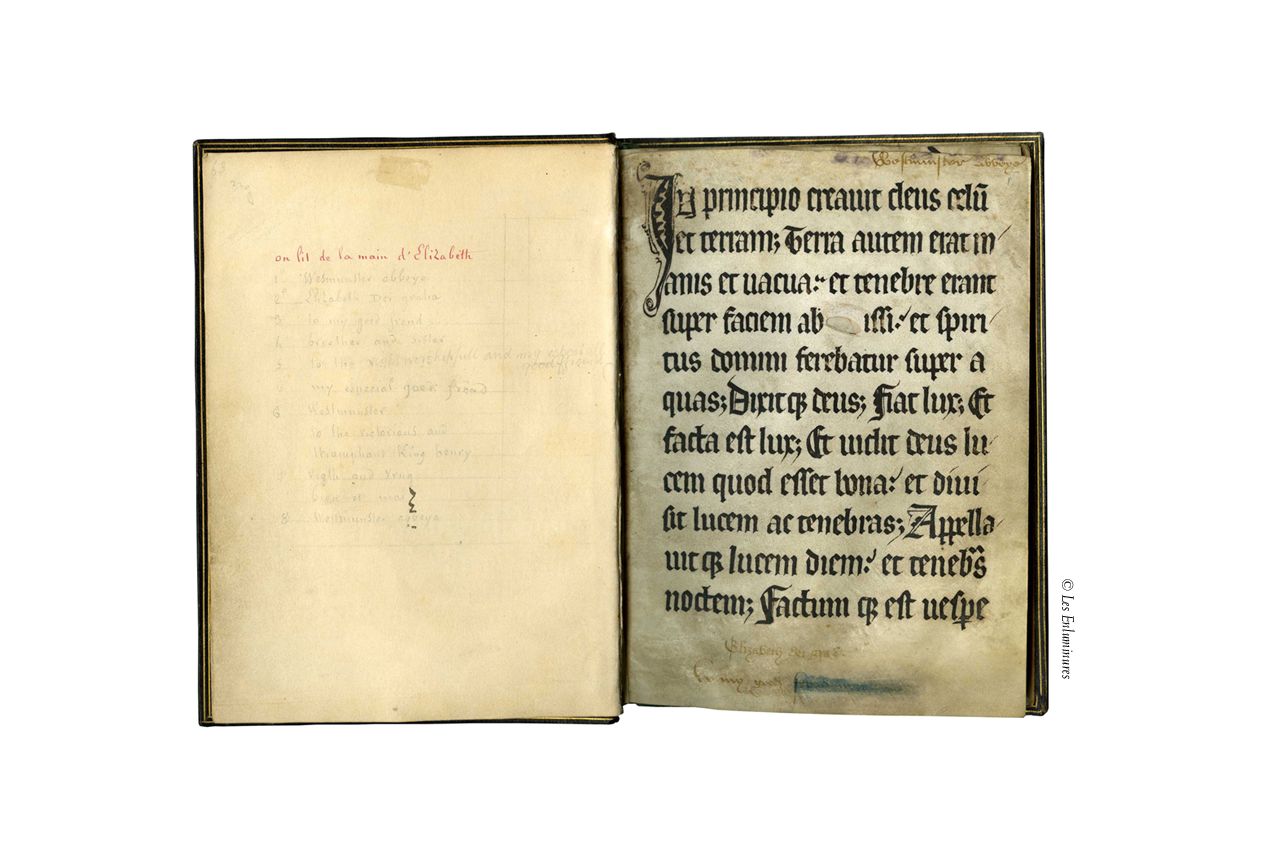 on lit de la main d'Elizabeth
1° Westmunster abbeye
2° Elizabeth Dei gratia
3 to my good frend
4 breother and sister
5 to the right worshipfull and my especiall
good friend
6 my especial good frend
6 Westmunster
to the victorious and
triumphant King henry
right and
8 Westmunster abbeye
Westminster abbeye
In principio creauit deus celū
et terram; Terra autem erat in
anis et uacua: et tenebre erant
super faciem ab issi: et spiri
tus domini ferebatur super a
quas; Dixitqꝫ deus; Fiat lux; Et
facta est lux; Et uidit deus lu
cem quod esset bona: et diui
sit lucem ac tenebras; Appella
uitqꝫ lucem diem: et tenebs̄
noctem; Factumqꝫ est uespe
Elizabeth dei gra
to my good
© Les Enluminures